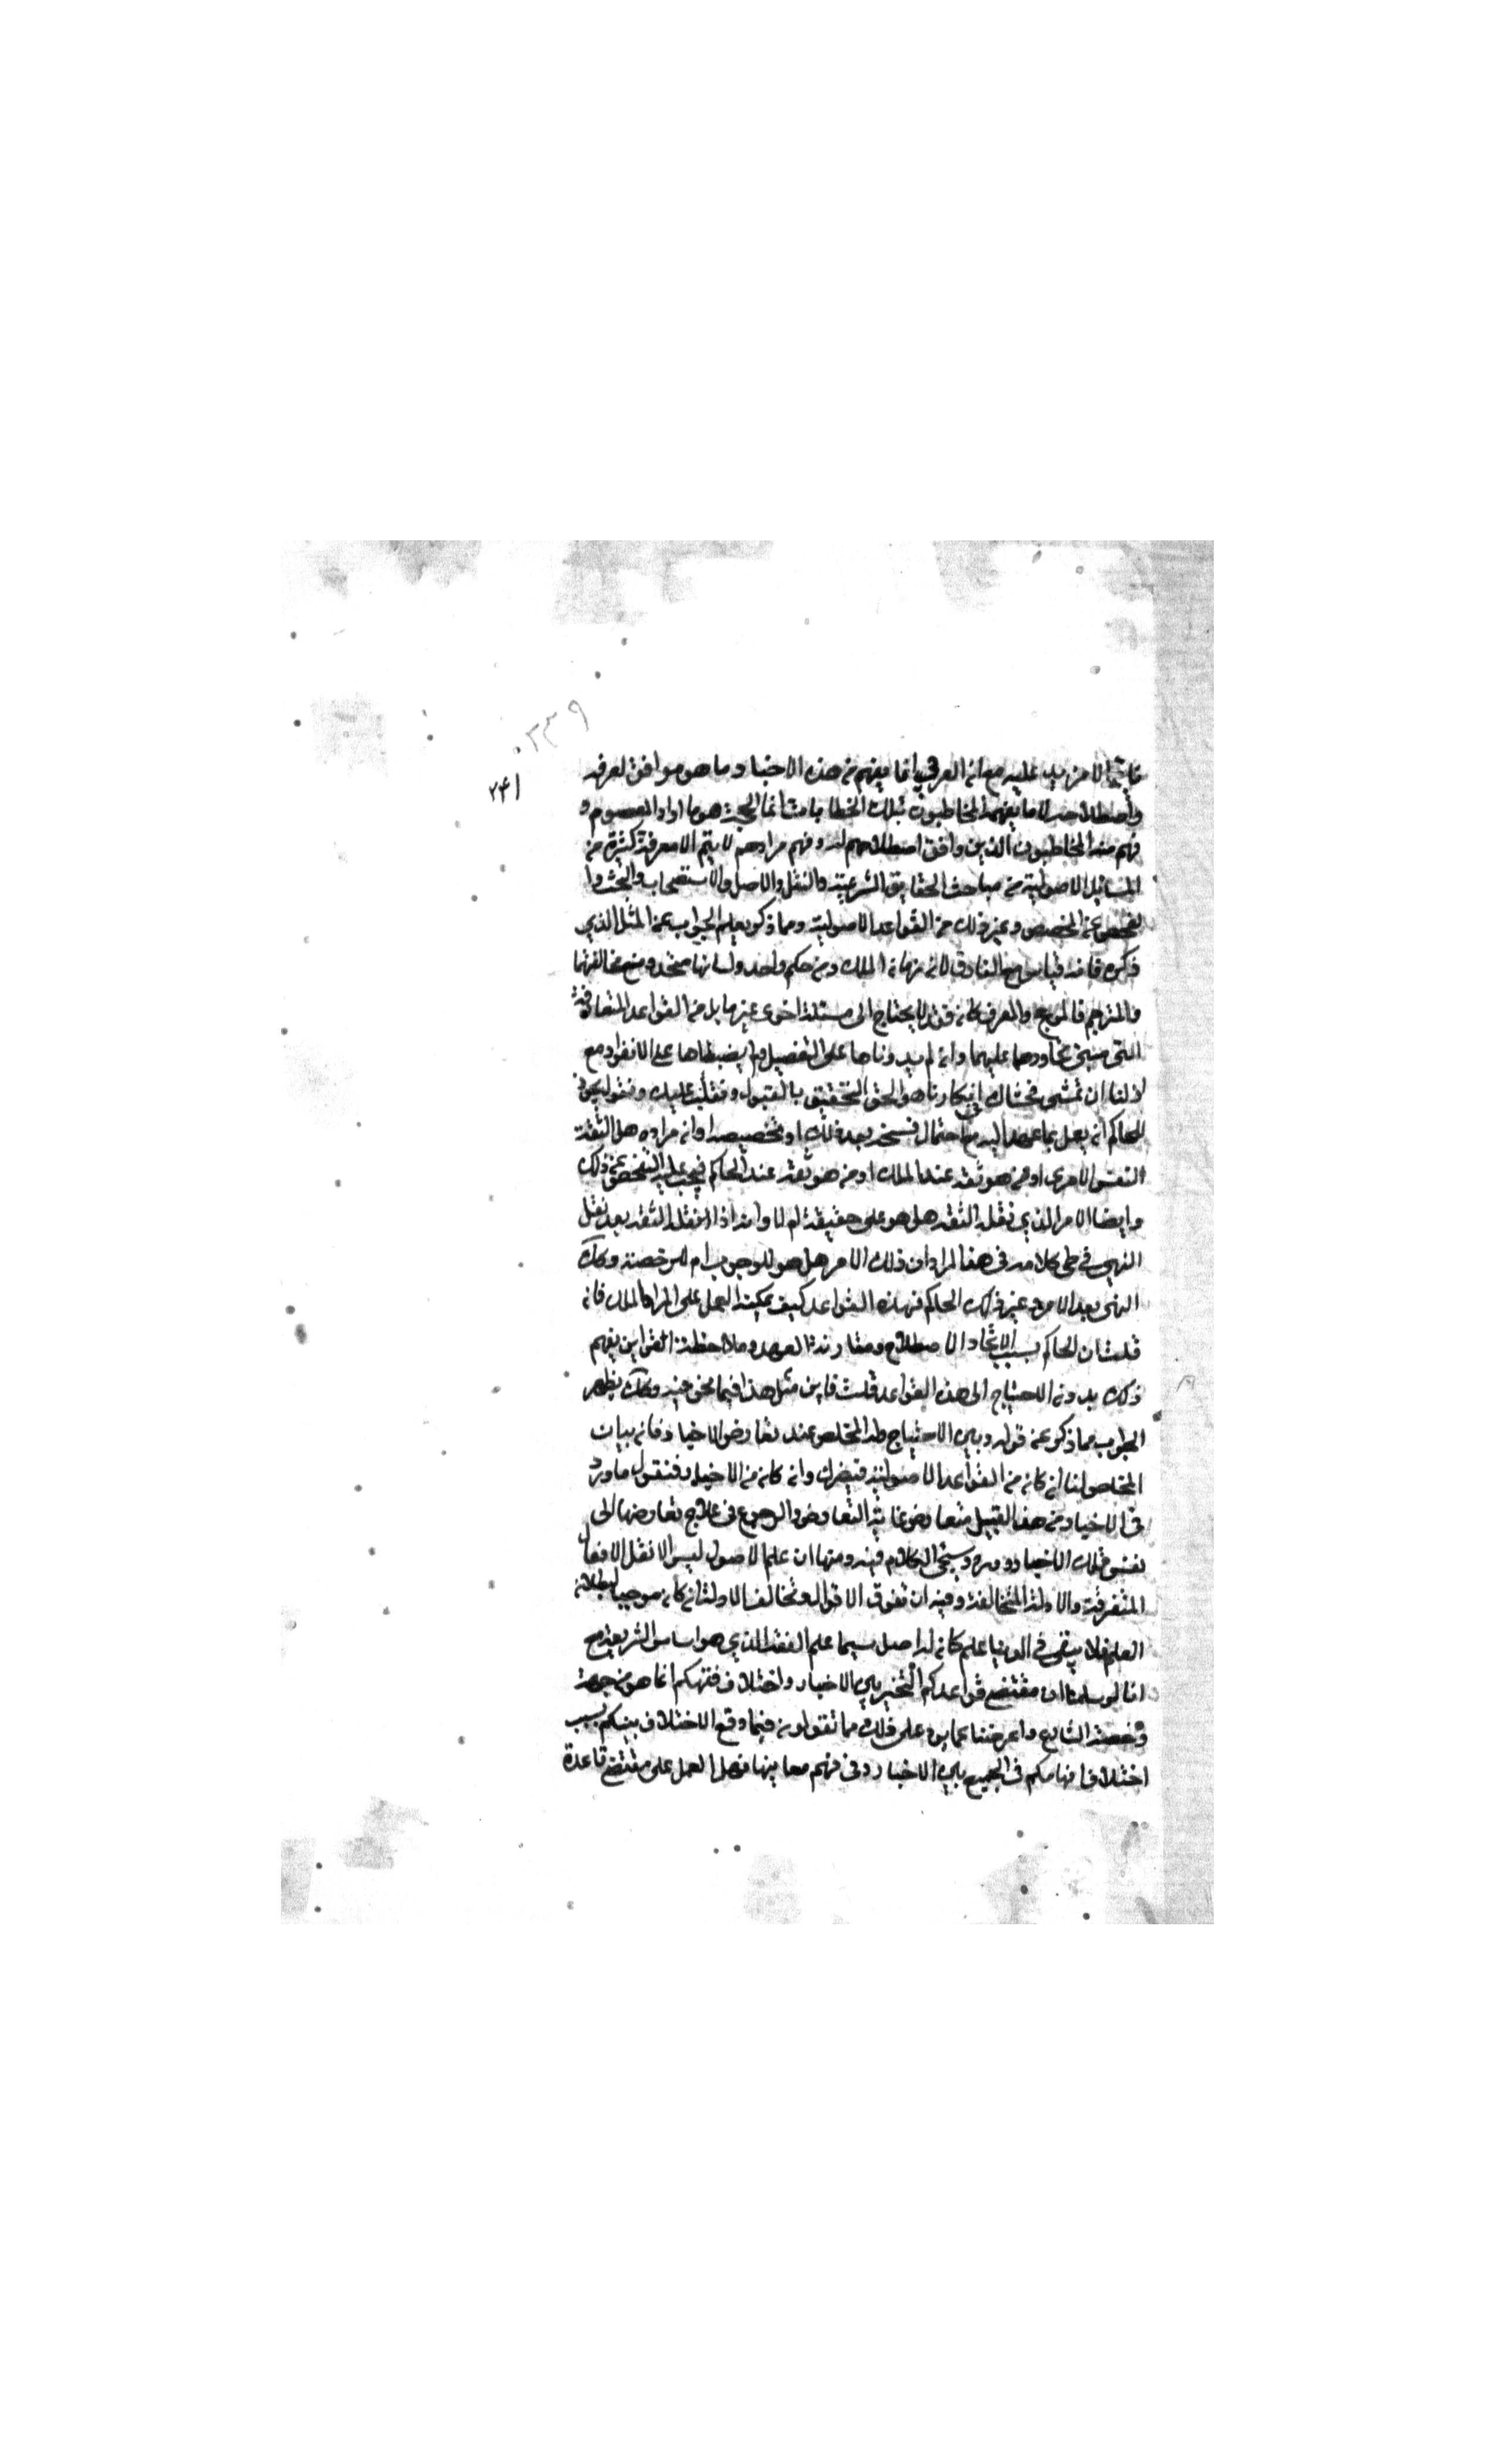 ٢٣٩
٢٤١
الامر يد عليه مع ان العرفي انما يفهم من هذه الاخبار ما هو موافق لعرفه
واصطلاحه لا ما يفهمه المخاطبون بتلك الخطابات انما الحجة هو ما اراد المعصوم و
فهم منه المخاطبون الذين وافق اصطلاحهم له وفهم مرادهم لا يتم الا معرفة كثيرة من
المسائل الاصولية من مباحث الحقايق الشرعية والنقل والاصل والاستصحاب والبحث وا
لفحص عن المخصص وغير ذلك من القواعد الاصولية ومما ذكر يعلم الجواب عن المثل الذي
ذكره فانه قياس مع الفارق لان زمان الملك ومن حكم واحد ولسانها متحد ومنع مخالفتهما
فالمترجم فالموج والمعرف كان فقد لا يحتاج الى مسئلة اخرى غيرها بل من القواعد المتعارفة
التي مبنى تحاورهما عليهما وان لم يدوناها على التفصيل ولم يضبطاها على الانفراد مع
لو لنا ان نمشى انكارنا هو الحق الحقيق بالقبول ونقلب عليك ونقول يجوز
للحاكم ان يعمل بما عهد اليه مع احتمال نسخه بعد ذلك او تخصيصه او ان مراده هل الثقة
النفس الامرى او من هو ثقة عند الملك او من هو ثقة عند الحاكم فيجب عليه التفحص عن ذلك
وايضا الامر الذي نقله الثقة هل هو على حقيقته ام لا وانه اذا نقل الثقة بعد نقل
النهي في طي كلامه في هذا المراد ان ذلك الامر هل هو للوجوب ام للرخصة وكك
النهى بعد الامر وغير ذلك الحاكم فهذه القواعد كيف يمكنه العمل على امر الملك فان
قلت ان الحاكم بسبب الاتحاد الاصطلاح ومقارنة العهد وملاحظة القراين يفهم
ذلك بدون الاحتياج الى هذه القواعد قلت فاين مثل هذا فيما نحن فيه وكك يظهر
الجواب مما ذكر عن قوله وبين الاحتياج طرد المخلص عند تعارض الاخبار فان بيان
المخلص لنا ان كان من القواعد الاصولية فيضرك وان كان من الاخبار فنقول ما ورد
في الاخبار من هذا القبيل متعارض غاية التعارض والرجوع في علاج تعارضها الى
نفس تلك الاخبار دور وسيجئ الكلام فيه ومنها ان علم الاصول ليس الا نقل الاقوال
المتفرقة والادلة المتخالفة وفيه ان تفرق الاقوال وتخالف الادلة ان كان موجبا لبطلان
العلم فلا يبقى في الدنيا علم كان له اصل سيما علم الفقه الذي هو اساس الشريعة مع
انا لو سلمنا ان مقتضى قواعدكم التخيير بين الاخبار واختلاف فقهكم انما هو من جهة
رخصة الشارع واعرضنا عما يرد على ذلك مما تقولون فيما وقع الاختلاف بينكم بسبب
اختلاف افهامكم في الجمع بين الاخبار وفي فهم معانيها فهل العمل على مقتضى قاعدة